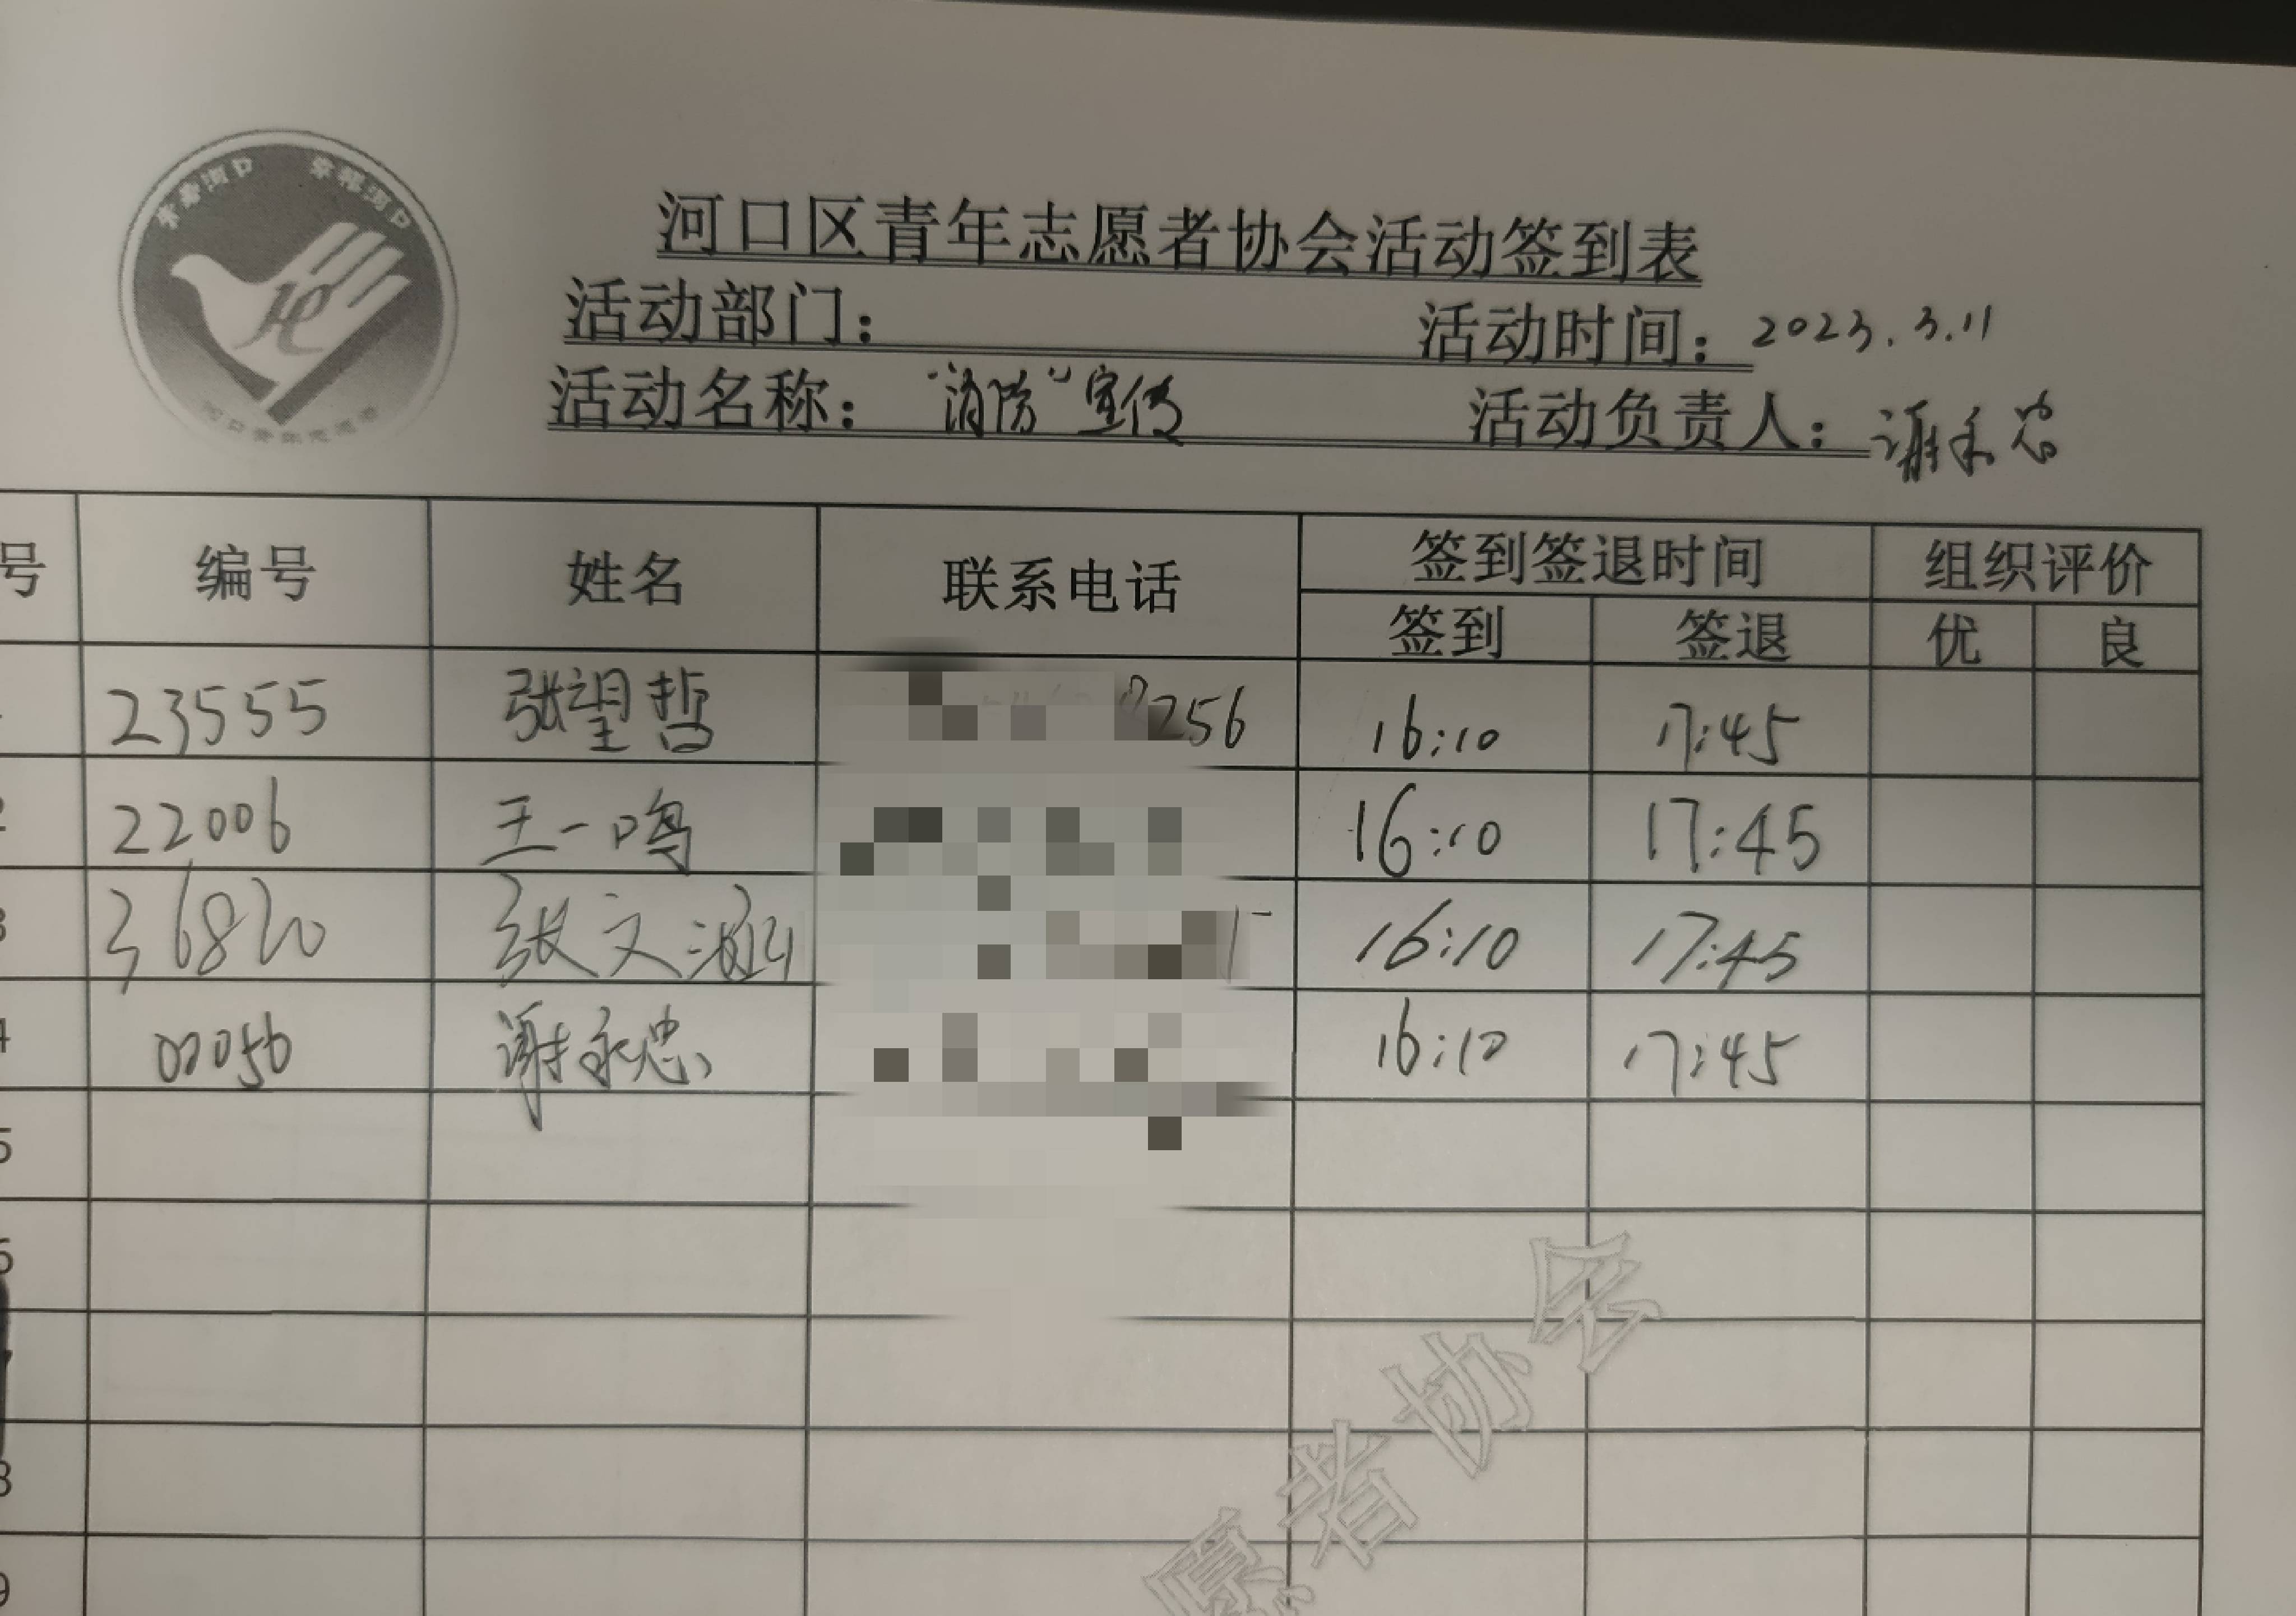 河口区青年志愿者协会活动签到表
活动部门： 活动时间：2023.3.11
活动名称："消防"宣传 活动负责人：谢永忠
号 编号 姓名 联系电话 签到签退时间 组织评价
签到 签退 优 良
23555 张望哲 256 16:10 17:45
2 22006 王一鸣 16:10 17:45
3 36820 张文涵 16:10 17:45
4 00056 谢永忠 16:10 17:45
5
6
8
9
愿者协会